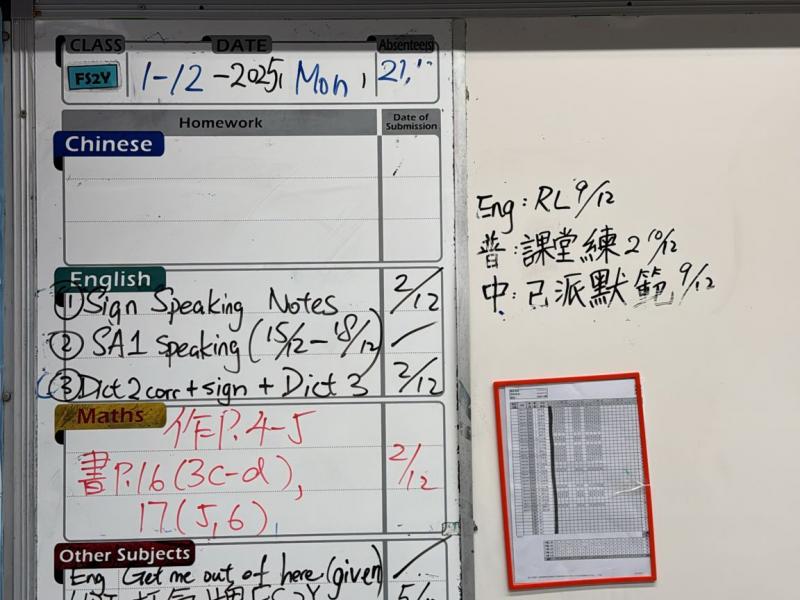 CLASS DATE Absentee(s)
FS2Y 1-12-2025, Mon, 21,
Homework Date of Submission
Chinese
English
① Sign Speaking Notes 2/12
② SA1 Speaking (15/12 - 18/12)
③ Dict 2 corr + sign + Dict 3 2/12
Maths
作P.4-5
書P.16 (3c-d), 2/12
17 (5, 6)
Other Subjects
Eng Get me out of here (given)
FS2Y
Eng: RL 9/12
普: 課堂練2 10/12
中: 已派默範 9/12